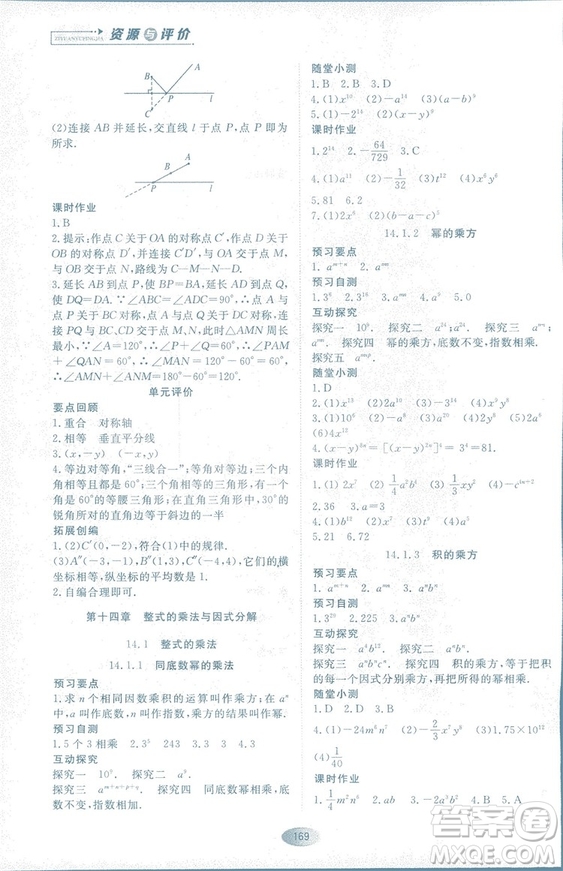 资源与评价
ZIYUANYUPINGJIA
B A
P l
C
(2)连接 AB 并延长,交直线 l 于点 P,点 P 即为
所求.
A
B
P l
课时作业
1.B
2.提示:作点 C 关于 OA 的对称点 C′,作点 D 关于
OB 的对称点 D′,连接 C′D′,与 OA 交于点 M,
与 OB 交于点 N,路线为 C—M—N—D.
3.延长 AB 到点 P,使 BP=BA,延长 AD 到点 Q,
使 DQ=DA. ∵∠ABC=∠ADC=90°, ∴点 A
与点 P 关于 BC 对称,点 A 与点 Q 关于 CD 对称,
连接 PQ 与 BC,CD 相交于 M,N,△AMN 周长
最小, ∵∠BAD=120°, ∴∠P+∠Q=60°,
∵∠PAM=∠P,∠QAN=∠Q, ∴∠PAM
+∠QAN=60°, ∴∠MAN=60°,
∴∠AMN+∠ANM=120°.
单元评价
要点回顾
1.重合 对称轴
2.相等 垂直平分线
3.(x,-y) (-x,y)
4.等边对等角,“三线合一”;等角对等边;三个内
角都是 60°;三个角都相等的三角形,有一个角是
60°的等腰三角形;在直角三角形中,30°的
锐角所对直角边等于斜边的一半
拓展创编
1.(2)C′(1,1),符合(1)中的规律.
(3)A″(-3,-1),B″(-2,-4),它们的横
坐标相等,纵坐标互为相反数.
2.自编合理即可.
第十四章 整式的乘法与因式分解
14.1 整式的乘法
14.1.1 同底数幂的乘法
预习要点
1.求 n 个相同因数乘积的运算叫作乘方,在 aⁿ
中,a 叫作底数,n 叫作指数,乘方的结果叫作幂.
预习自测
1.5 个 3 相乘 2.3⁵ 3.a⁵
互动探究
探究一 10⁹. 探究二 a⁵.
探究三 aᵐ⁺ⁿ⁺ᵖ⁺ᵠ 探究四 同底数幂的乘法
随堂小测
1.B 2.B 3.D
4.(1)x¹⁰ (2)-a¹⁴ (3)(a-b)⁹
5.(1)-2⁹ (2)(x-y)⁷
课时作业
1.2¹⁴ 2.-64/729 3.C
4.(1)a¹¹ (2)-1/32 (3)t¹² (4)(x-y)⁵
5.D 6.12
7.(1)2x⁷ (2)-(a-b-c)⁵
14.1.2 幂的乘方
预习要点
1.aᵐ⁺ⁿ 2.aᵐⁿ
预习自测
1.3⁶ 2.a⁶ 3.a³ᵐ
互动探究
探究一 10⁶. 探究二 a¹²;a¹². 探究三 aᵐⁿ;
aᵐⁿ. 探究四 幂的乘方,底数不变,指数相乘.
探究五 aᵐⁿᵖ.
随堂小测
1.D
2.(1)x¹³ (2)2a¹⁰ (3)-a¹⁰
3.(1)10¹² (2)a¹² (3)a²ᵐ (4)-x¹²
(5)-a¹⁰ (6)-x¹⁸
4.(x-y)⁸ⁿ=[(x-y)²ⁿ]⁴=3⁴=81.
课时作业
1.(1)2x⁷ (2)1/4a²b⁴ (3)-1/3xy² (4)-cⁱᵐ⁺²
2.14 3.36
4.(1)b¹² (2)a¹⁵ (3)2x¹² (4)-t¹⁴
5.21 6.72
14.1.3 积的乘方
预习要点
1.aᵐ⁺ⁿ 2.aᵐⁿ 3.aⁿbⁿ
预习自测
1.3²⁰ 2.225 3.4x²
互动探究
探究一 a⁶b¹². 探究二 aⁿbⁿ;aⁿbⁿ.
探究三 aⁿbⁿcⁿ. 探究四 积的乘方,等于把积
的每一个因式分别乘方,再把所得的幂相乘.
随堂小测
1.D 2.D
3.(1)-24m⁵n⁶ (2)-2/3x⁷y⁶ (3)1.75×10⁹
(4)1/40
课时作业
1.1/4m²n⁶ 2.-a⁶b¹² 3.A
169
答案圈
MXQE.COM